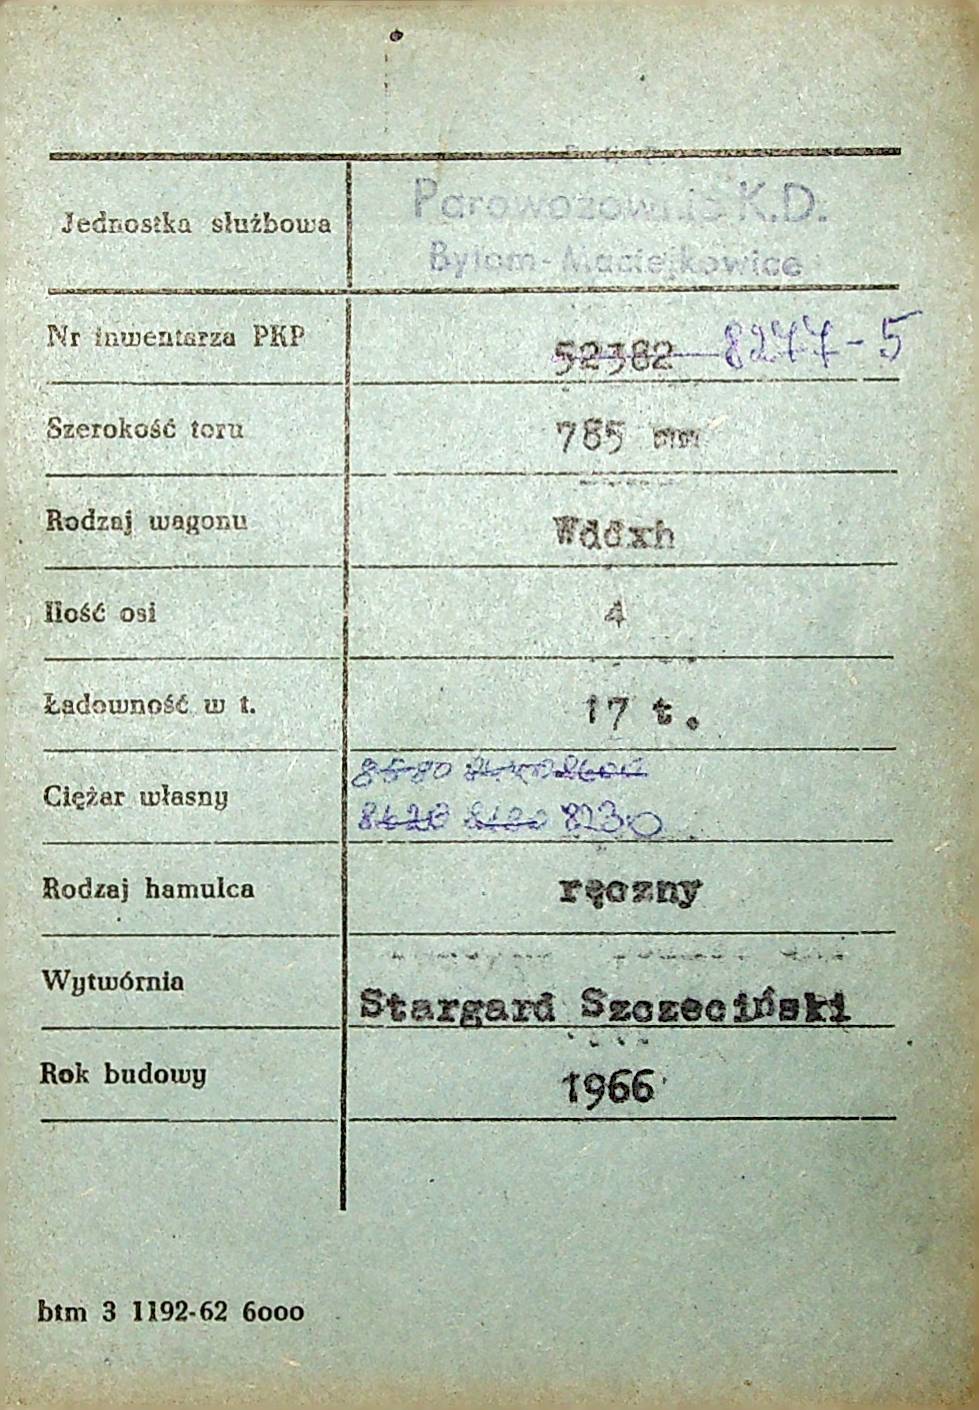 P. K. P.
Jednostka służbowa Parowozownia K.D.
Bytom-Maciejkowice
Nr inwentarza PKP 52382 8277-5
Szerokość toru 785 mm
Rodzaj wagonu Wddxh
Ilość osi 4
Ładowność w t. 17 t.
8580 8600
Ciężar własny 8230
Rodzaj hamulca ręczny
Wytwórnia Stargard Szczeciński
Rok budowy 1966
btm 3 1192-62 6000